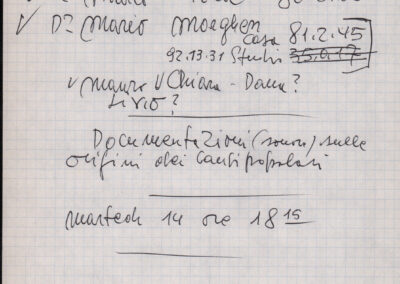 √ Dr Mario Moeghen
casa 81.2.45
92.13.31 Studio 35.9.17
√ Mauro √ Chiara - Dana?
Livio?
Documentazioni (sonore) sulle
origini dei canti popolari
martedì 14 ore 18 15